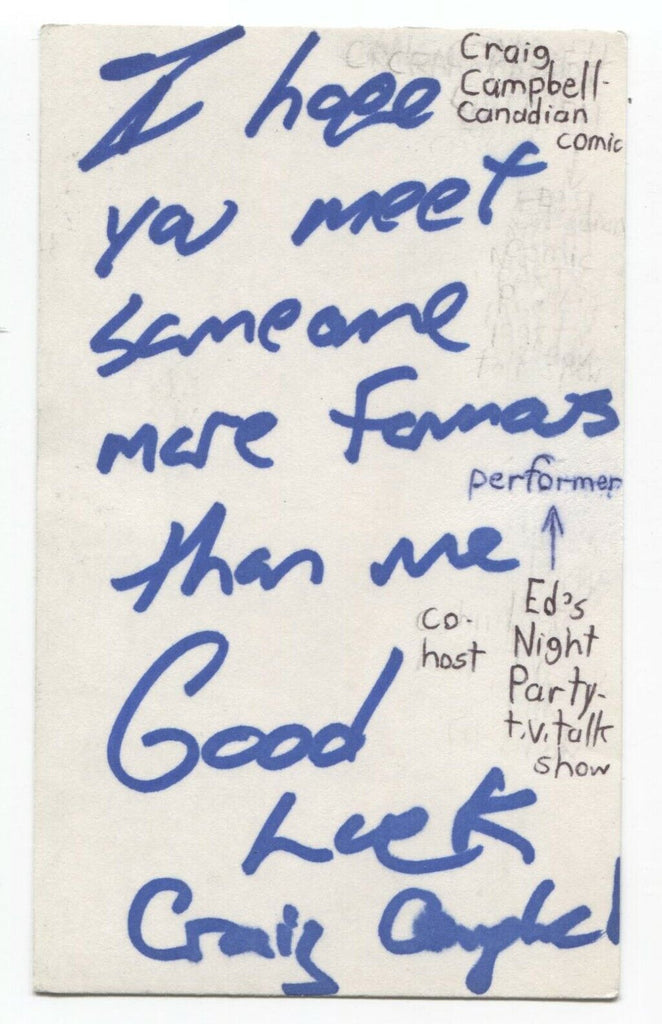 I hope
you meet
someone
more famous
than me
Good
Luck
Craig Campbell
Craig
Campbell-
Canadian
comic
performer
↑
co-
host
Ed's
Night
Party-
t.v. talk
show